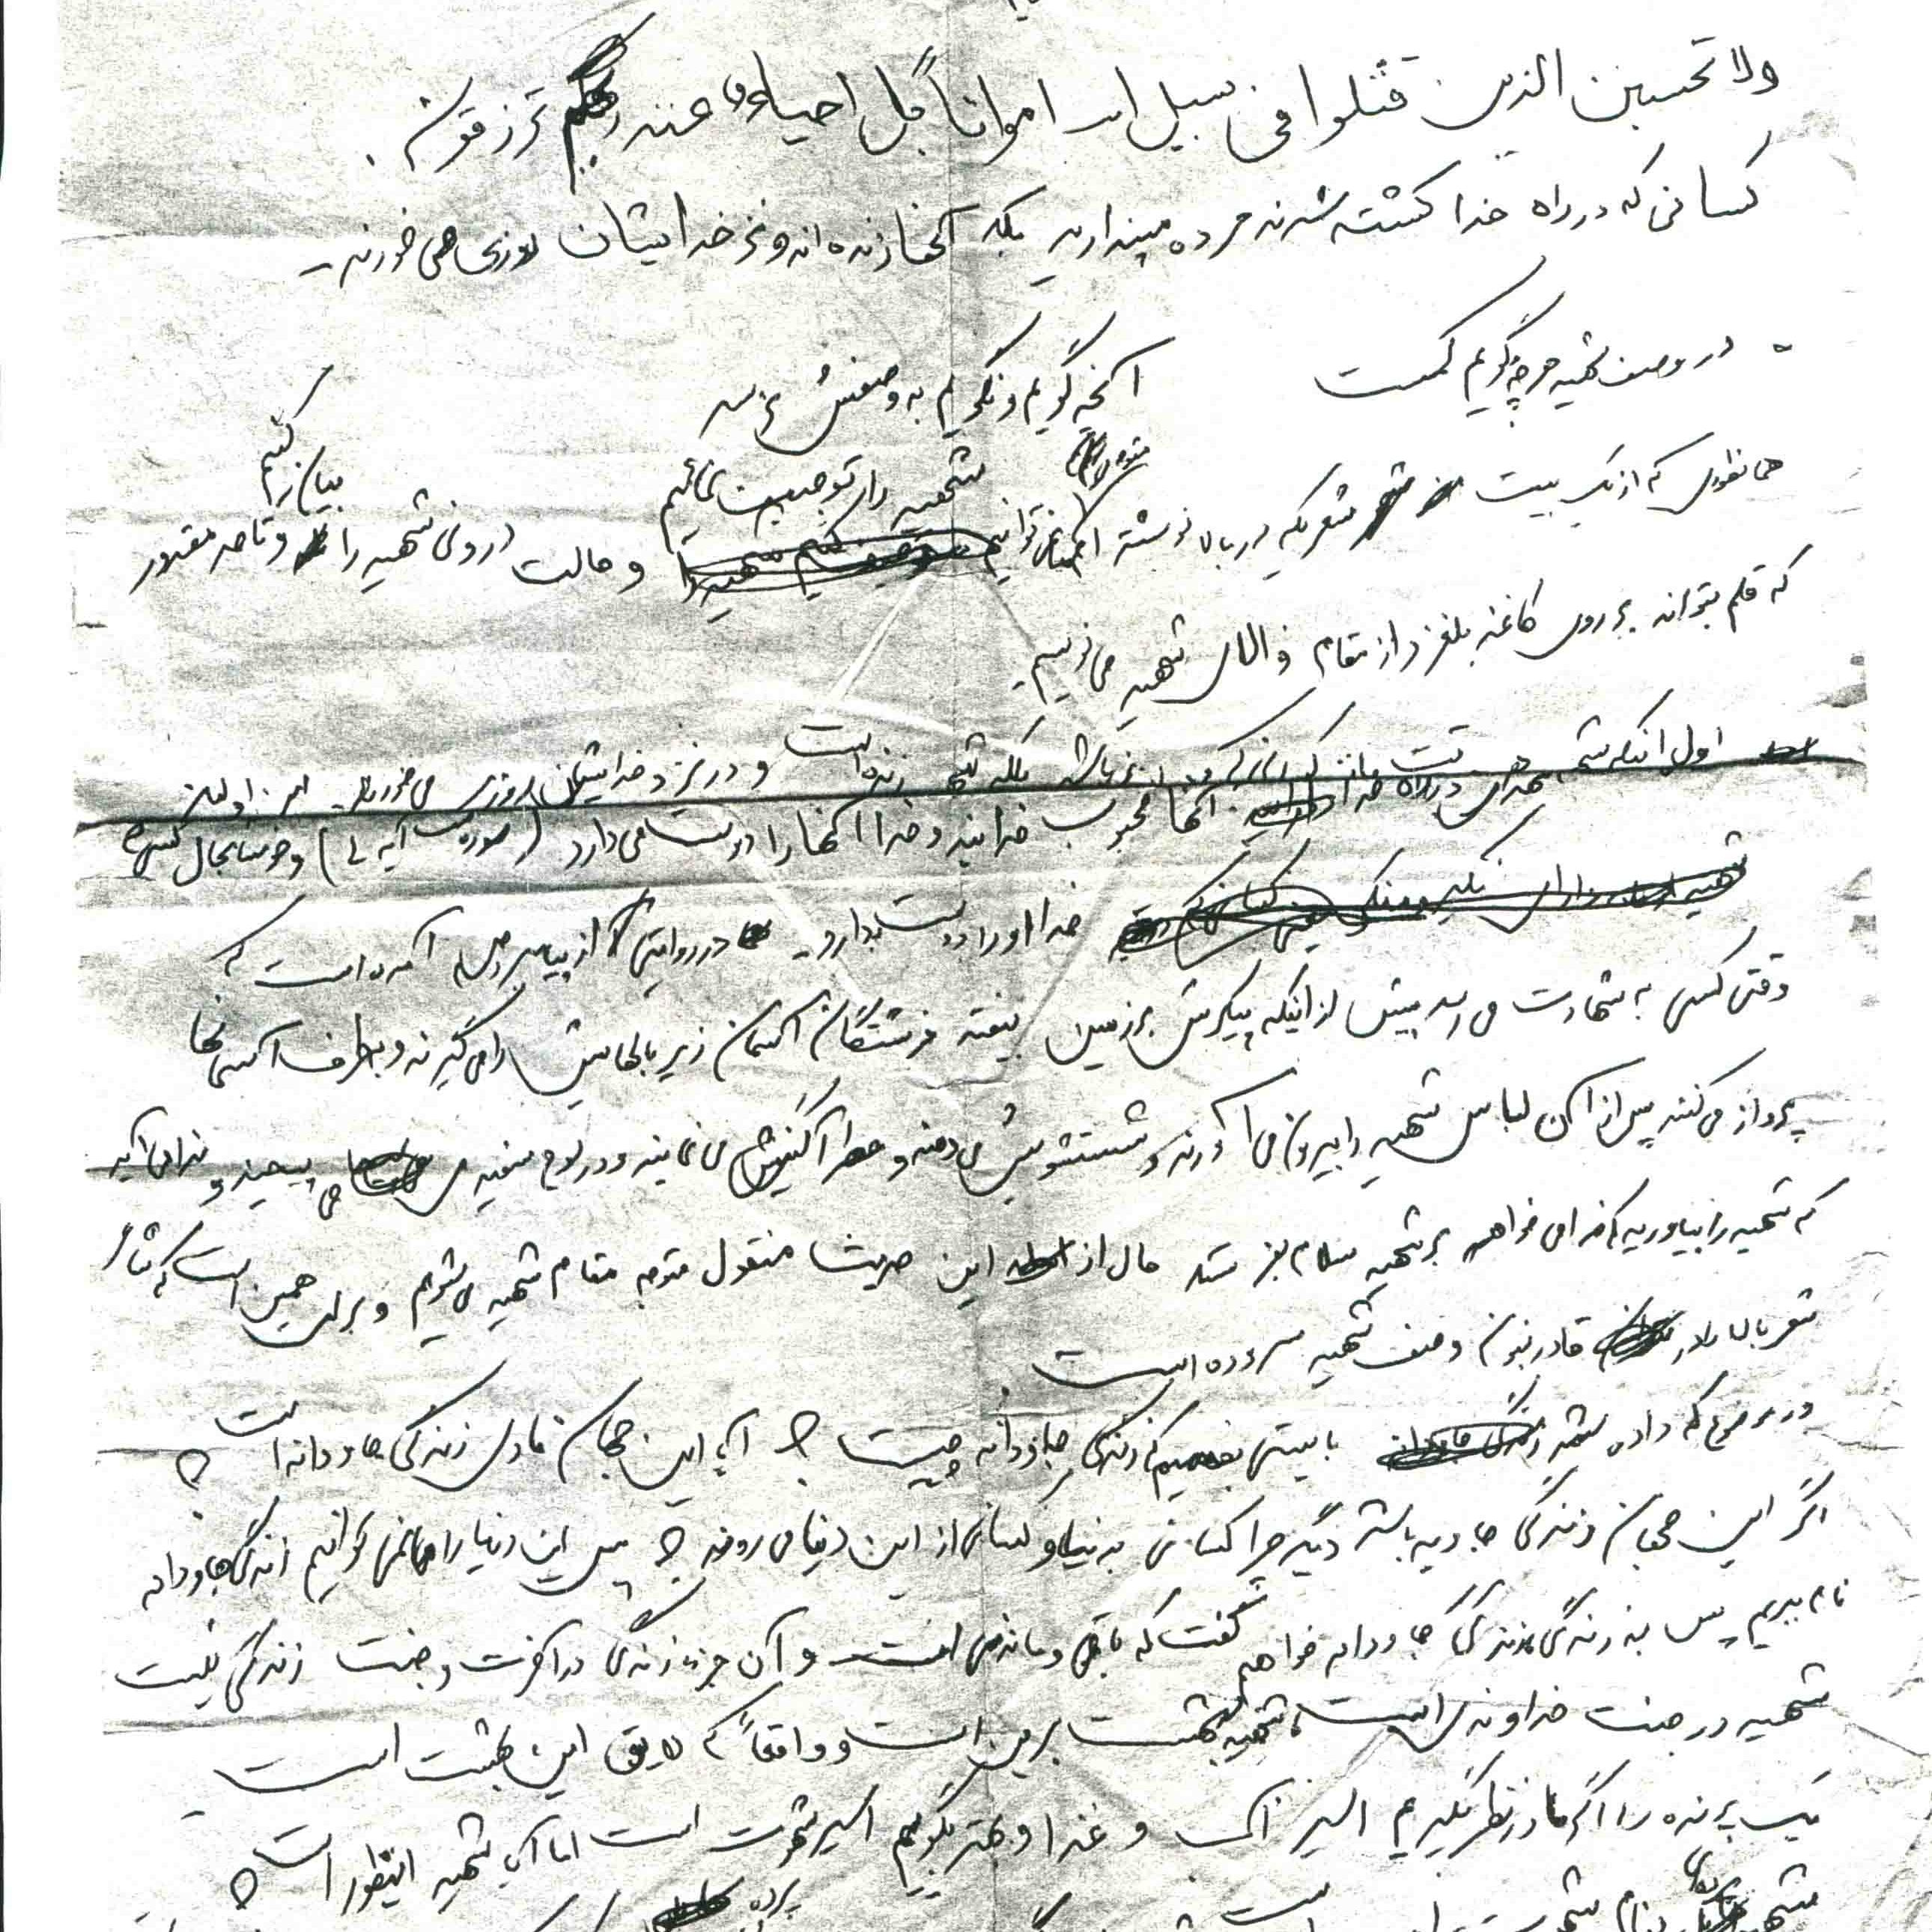 ولا تحسبن الذین قتلوا فی سبیل الله امواتاً بل احیاء عند ربهم ترزقون .
کسانی که در راه خدا کشته شدند مرده مپندارید بلکه آنها زنده اند و نزد خدایشان روزی می خورند -
در وصف شهید هر چه گویم کمست
آنچه گویم و نگویم به وصفش نرسد
همانطوری که از یک بیت شعریکه در بالا نوشته نمی توانیم شهید را توصیف نمائیم و حالت درونی شهید را بیان کنیم و تا حد مقدور
که قلم بتواند بر روی کاغذ بلغزد از مقام والای شهید می نویسیم.
اول اینکه شهید بلکه شهید زنده است و در نزد خدایشان روزی می خورند این اولین
در راه خدا آنها محبوب خدایند و خدا آنها را دوست می دارد (سوره آیه ) و خوشابحال کسی که
خدا او را دوست بدارد - در روایتی از پیامبر آمده است که
وقتی کسی به شهادت می رسد پیش از اینکه پیکرش بر زمین بیفتد فرشتگان آسمان زیر بالهایش را می گیرند و بطرف آسمانها
پرواز می کنند پس از آن لباس شهید را بیرون می آورند و شستشویش می دهند و عطر آگینش می نمایند و در لوح سفیدی می پیچند و ندا می آید
که شهید را بیاورید که خدا می خواهد بر شهید سلام بفرستد حال از این حدیث منقول متوجه مقام شهید می شویم و برای همین است که شاعر
شعر بالا را در قادر نبودن وصف شهید سروده است .
در موضوع که داده شد بایستی بفهمیم که زندگی جاودانه چیست ؟ آیا این جهان مادی زندگی جاودانه است ؟
اگر این جهان زندگی جاوید باشد دیگر چرا کسانی به دنیا و کسانی از این دنیا می روند ؟ پس این دنیا را ما نمی توانیم زندگی جاودانه
نام ببریم پس به زندگی زندگی جاودانه خواهیم گفت که باقی و ماندنی است و آن جز زندگی در آخرت و جنت زندگی نیست
شهید در جنت خداوندی است شهید بهشت برین است و واقعاً که لایق این بهشت است
یک پرنده را اگر ما در نظر بگیریم اسیر آب و غذا و بهتر بگوییم اسیر شهوت است اما آیا شهید اینطور است ؟